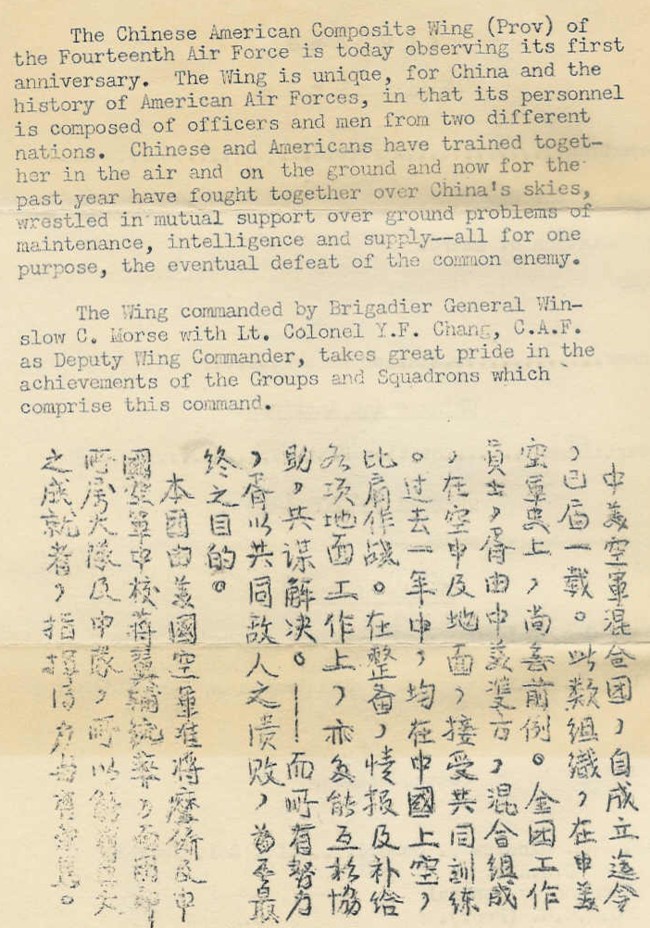 The Chinese American Composite Wing (Prov) of
the Fourteenth Air Force is today observing its first
anniversary. The Wing is unique, for China and the
history of American Air Forces, in that its personnel
is composed of officers and men from two different
nations. Chinese and Americans have trained toget-
her in the air and on the ground and now for the
past year have fought together over China's skies,
wrestled in mutual support over ground problems of
maintenance, intelligence and supply--all for one
purpose, the eventual defeat of the common enemy.
The Wing commanded by Brigadier General Win-
slow C. Morse with Lt. Colonel Y.F. Chang, C.A.F.
as Deputy Wing Commander, takes great pride in the
achievements of the Groups and Squadrons which
comprise this command.
中美空軍混合团，自成立迄今
，已届一载。此类組織，在中美
空軍史上，尚無前例。全团工作
員士，胥由中美雙方，混合組成
，在空中及地面，接受共同訓練
。过去一年中，均在中國上空，
比肩作战。在整备，情报及补给
各項地面工作上，亦能互相協
助，共谋解决。——而所有努力
，胥以共同敌人之溃败，為最
終之目的。
本團由美國空軍准将摩斯及中
國空軍中校蒋翼輔統率，
所屬大隊及中隊，所以能有
之成就者，指揮